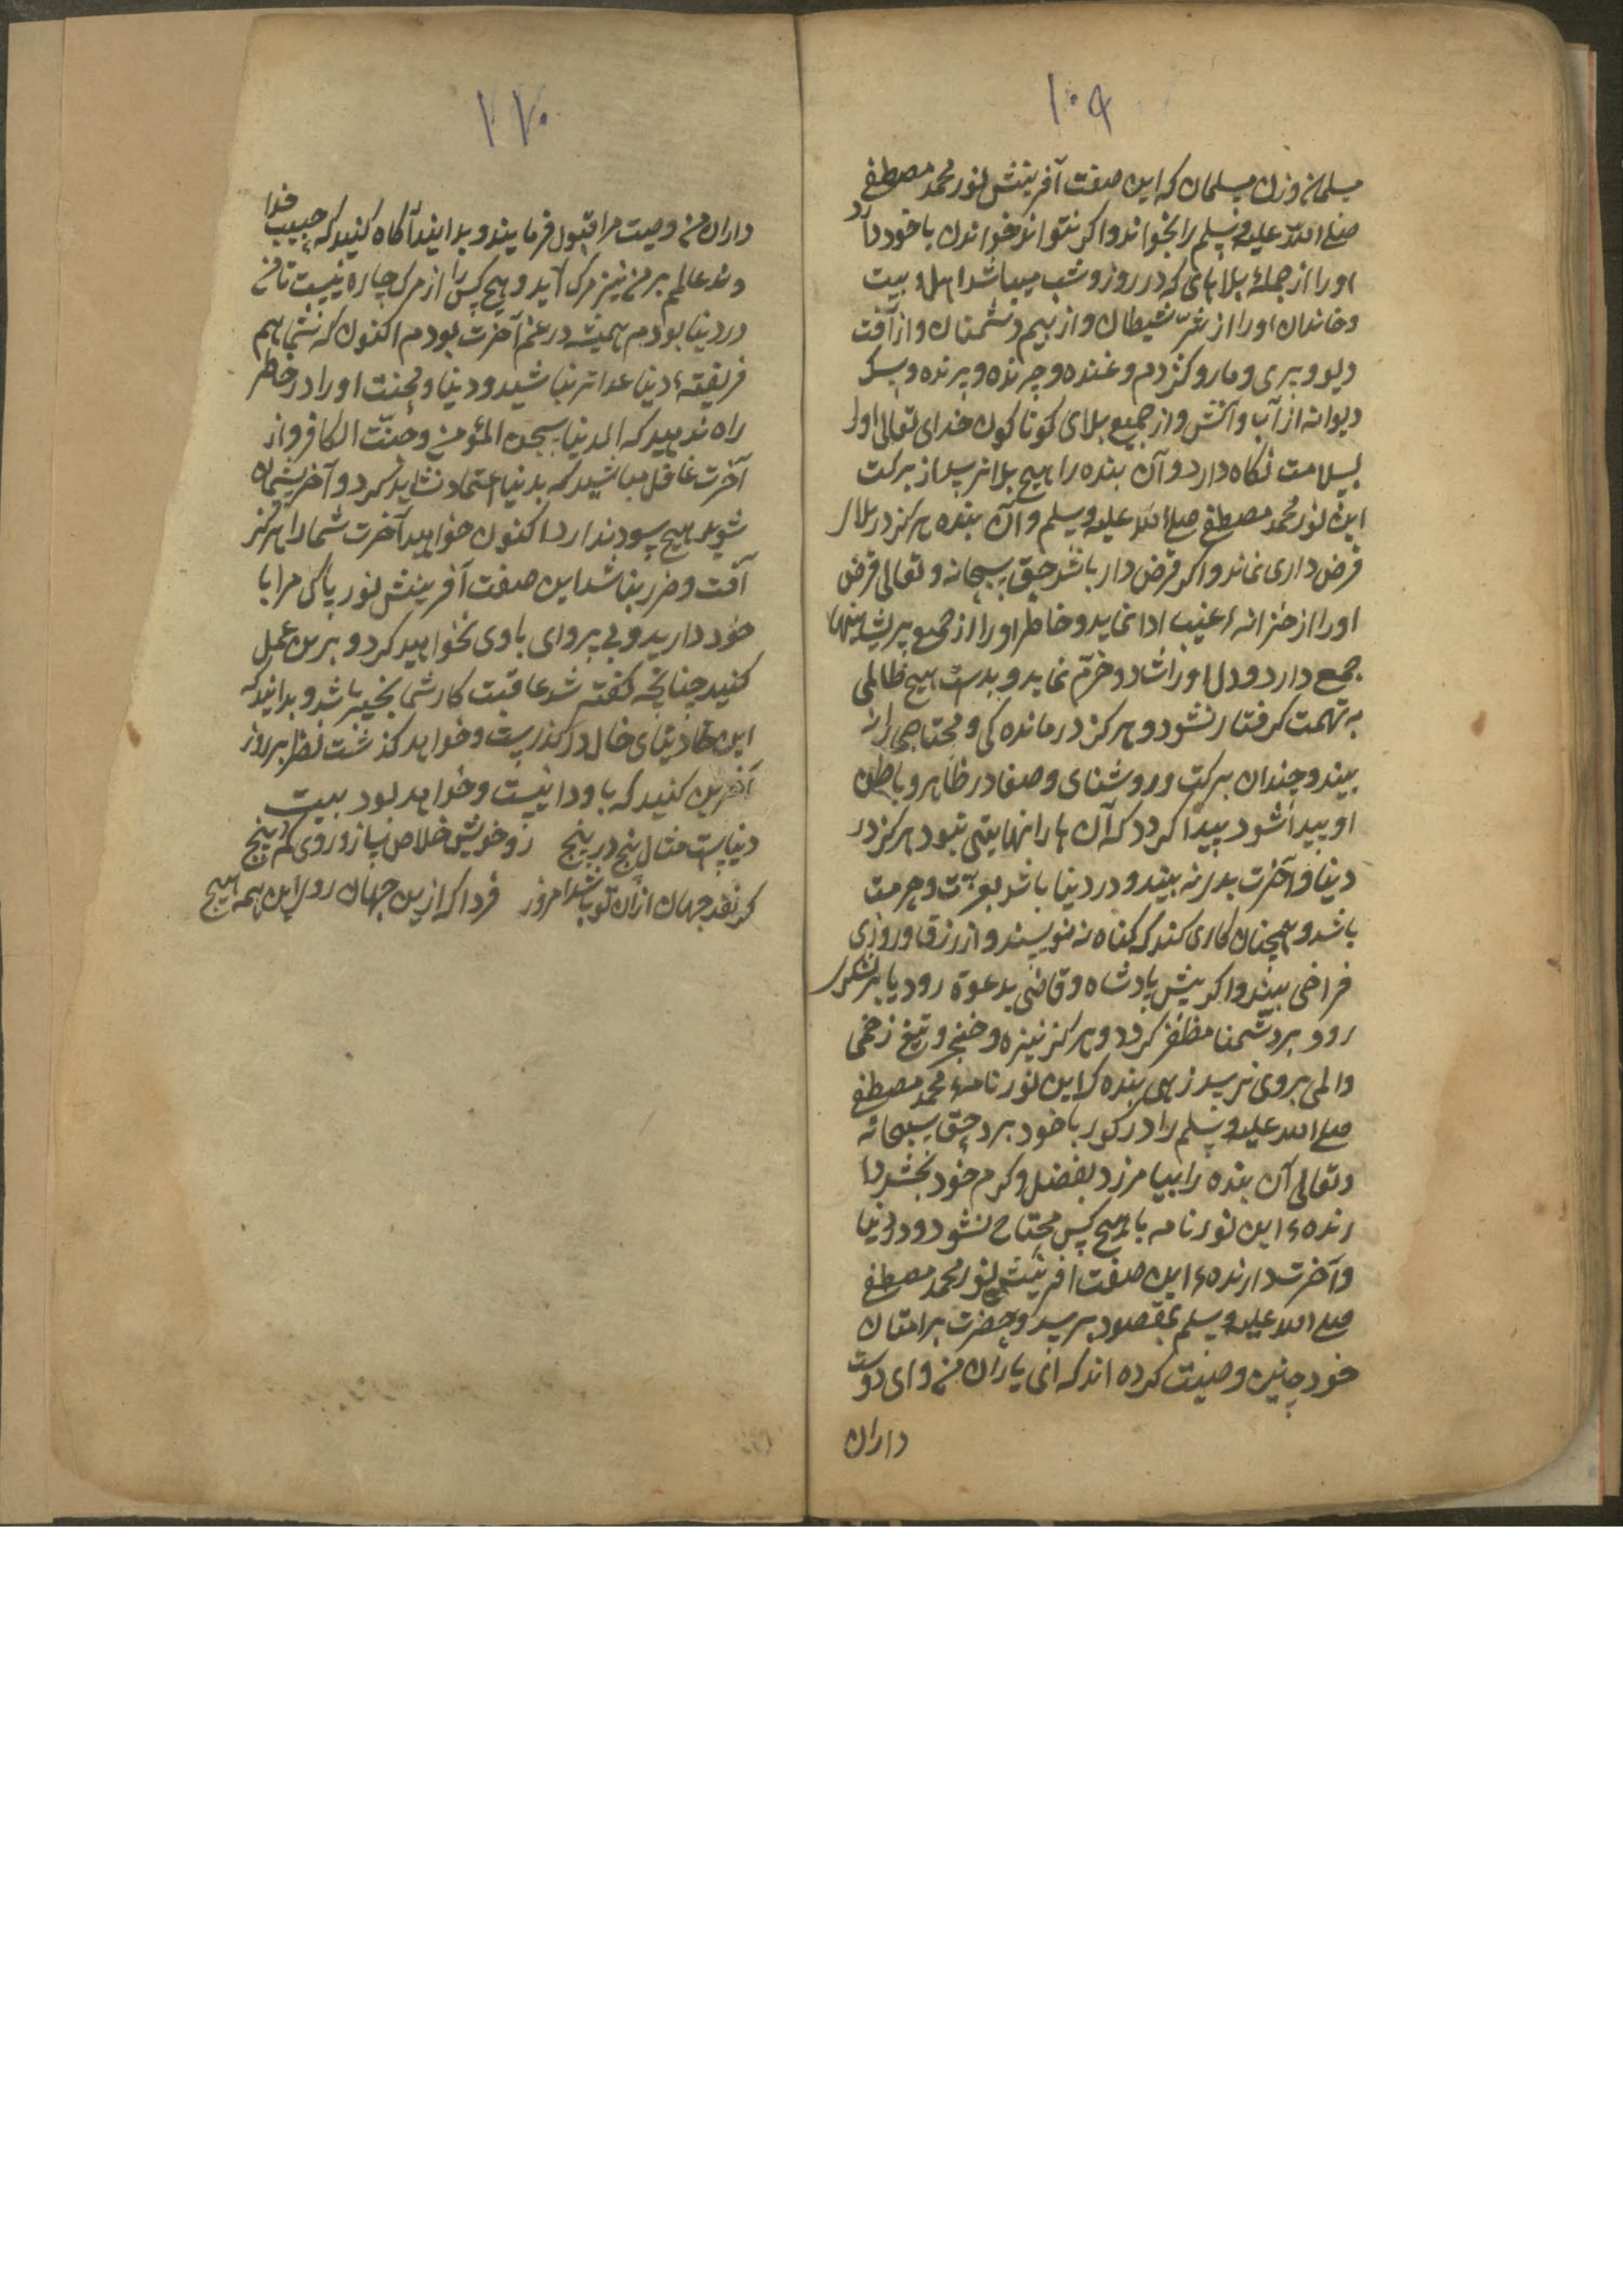 ۱۰۹
مسلمانی و زن مسلمان که این صفت آفرینش نور محمد مصطفی
صلی الله علیه وسلم را بخواند و اکر نتواند خواندن با خود دارد
اورا از جملهٔ بلاهای که در روز و شب میباشد اهل و بیت
و خاندان اورا از شرّ شیطان و از بیم دشمنان و از آفت
دیو و پری و مار و کژدم و غنده و چرنده و پرنده و سک
دیوانه از آب و آتش و از جمیع بلای کوناکون خدای تعالی اورا
بسلامت نکاه دارد و آن بنده را هیچ بلا نرسد از برکت
این نور محمد مصطفی صلی الله علیه وسلم و آن بنده هرکز در بلاء
قرض داری نماند و اکر قرض دار باشد حق سبحانه و تعالی قرض
اورا از خزانهٔ غیب ادا نماید و خاطر اورا از جمیع پریشانیها
جمع دارد و دل اورا شاد و خرّم نماید و بدست هیچ ظالمی
به تهمت کرفتار نشود و هرکز درمانده کی و محتاجی را نه
بیند و چندان برکت و روشنای و صفا در ظاهر و باطن
او پیدا شود پیدا کردد که آن ها را نهایتی نبود هرکز در
دنیا و آخرت بدر نه بیند و در دنیا باشد بعزّت و حرمت
باشد و همچنان کاری کند که کناه نه نویسند و از رزق و روزی
فراخی بیند و اکر پیش پادشاه و قاضی بدعوة رود یا بر لشکر
رود بر دشمنا مظفر کردد و هرکز نیزه و خنجر و تیغ زخمی
و المی بروی نرسد زهی بنده که این نور نامهٔ محمد مصطفی
صلی الله علیه وسلم را در کور با خود برد حق سبحانه
و تعالی آن بنده را بیامرزد بفضل و کرم خود بخشد دا
رندهٔ این نور نامه با هیچ کس محتاج نشود و در دنیا
و آخرت دارندهٔ این صفت آفرینش نور محمد مصطفی
صلی الله علیه وسلم بمقصود برسد و حضرت بر امتان
خود چنین وصیت کرده اند که ای یاران من و ای دوست
داران
۱۱۰
داران من وصیت مرا قبول فرمایند و بدانید آکاه کنید که حبیب خدا
وند عالم بر من نیز مرک آید و هیچ کس را از مرک چاره نیست تا من
در دنیا بودم همیشه در غم آخرت بودم اکنون که شما هم
فریفتهٔ دنیا غدار نباشید و دنیا و محنت اورا در خاطر
راه ندهید که الدنیا سجن المؤمن و جنّت الکافر و از
آخرت غافل مباشید که بدنیا اعتماد نشاید کرد و آخر پشیمان
شوید هیچ سود ندارد اکنون خواهید آخرت شما را هرکز
آفت و ضرر نباشد این صفت آفرینش نور پاکی مرا با
خود دارید و بی پروای باوی نخواهید کرد و برین عمل
کنید چنانچه کفته شد عاقبت کار شما بخیر باشد و بدانید که
این دنیای خال در کذرست و خواهد کذشت نظر بروز
آفرین کنید که باو دانیست و خواهد بود بیت
دنیاست مثال پنج در پنج زو خویش خلاص ساز و روی کم در پنج
کر نقد جهان ازان تو باشد امروز فردا که ازین جهان روی این همه هیچ